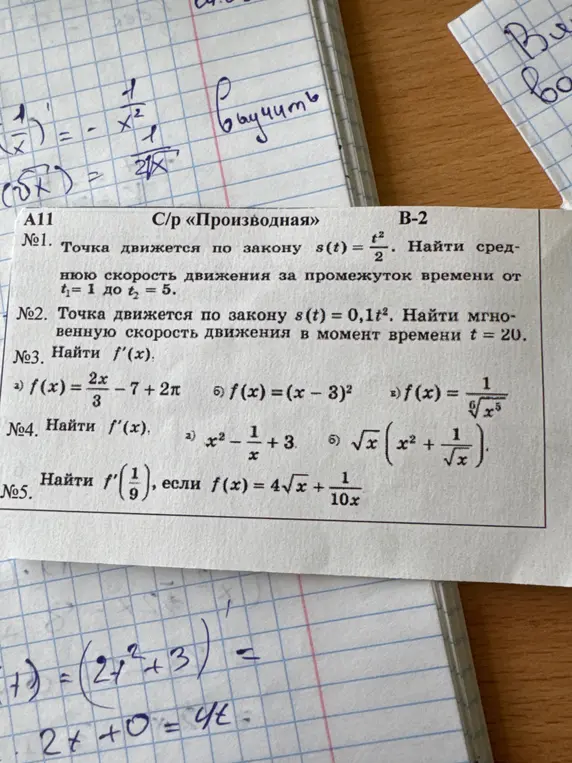 (1/x)' = - 1/x²
выучить
(√x)' = 1/2√x
A11 С/р «Производная» В-2
№1. Точка движется по закону s(t) = t²/2. Найти сред-
нюю скорость движения за промежуток времени от
t₁= 1 до t₂ = 5.
№2. Точка движется по закону s(t) = 0,1t². Найти мгно-
венную скорость движения в момент времени t = 20.
№3. Найти f'(x).
а) f(x) = 2x/3 − 7 + 2π б) f(x) = (x − 3)² в) f(x) = 1/⁶√x⁵
№4. Найти f'(x). а) x² − 1/x + 3 б) √x (x² + 1/√x).
№5. Найти f'(1/9), если f(x) = 4√x + 1/10x
= (2t²+3)' =
2t + 0 = 4t